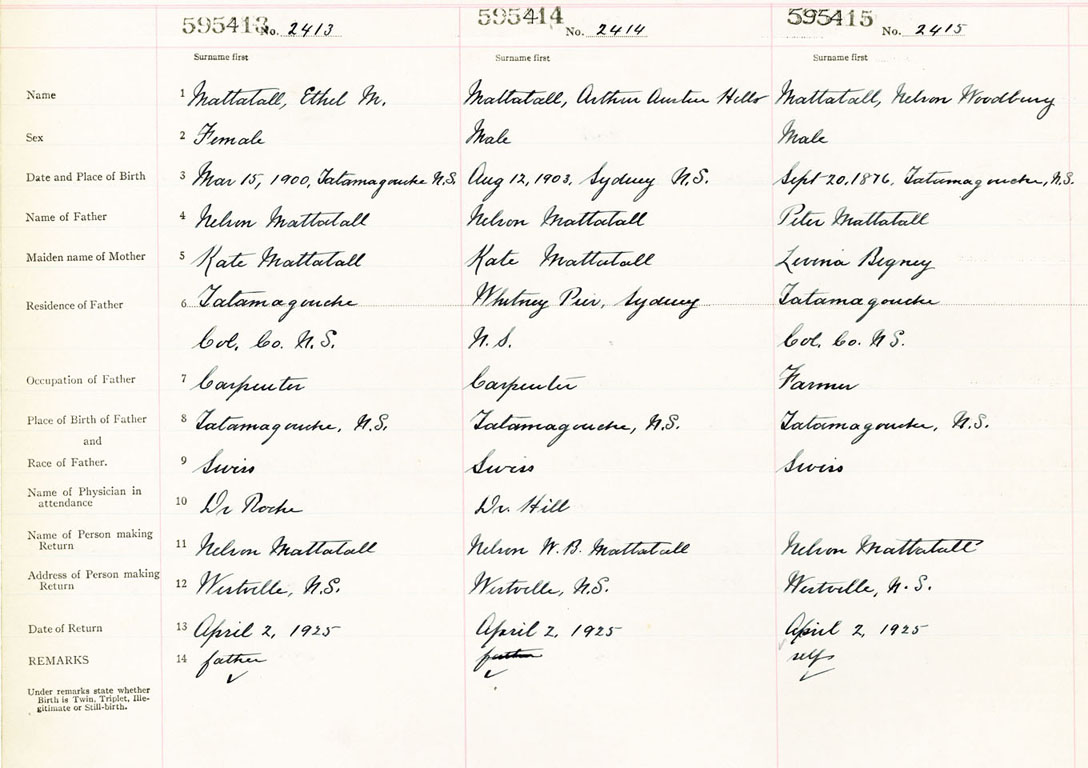 595413 No. 2413 595414 No. 2414 595415 No. 2415
Surname first Surname first Surname first
Name 1 Mattatall, Ethel M. Mattatall, Arthur Austin Mattatall, Nelson Woodbury
Sex 2 Female Male Male
Date and Place of Birth 3 Mar 15, 1900, Tatamagouche N.S. Aug 12, 1903, Sydney N.S. Sept 20, 1876, Tatamagouche, N.S.
Name of Father 4 Nelson Mattatall Nelson Mattatall Peter Mattatall
Maiden name of Mother 5 Kate Mattatall Kate Mattatall Levina Bigney
Residence of Father 6 Tatamagouche Whitney Pier, Sydney Tatamagouche
Col. Co. N.S. N.S. Col. Co. N.S.
Occupation of Father 7 Carpenter Carpenter Farmer
Place of Birth of Father 8 Tatamagouche, N.S. Tatamagouche, N.S. Tatamagouche, N.S.
and
Race of Father. 9 Swiss Swiss Swiss
Name of Physician in
attendance 10 Dr Roche Dr. Hill
Name of Person making
Return 11 Nelson Mattatall Nelson W. B. Mattatall Nelson Mattatall
Address of Person making
Return 12 Westville, N.S. Westville, N.S. Westville, N.S.
Date of Return 13 April 2, 1925 April 2, 1925 April 2, 1925
REMARKS 14 father father self
Under remarks state whether
Birth is Twin, Triplet, Ille-
gitimate or Still-birth.